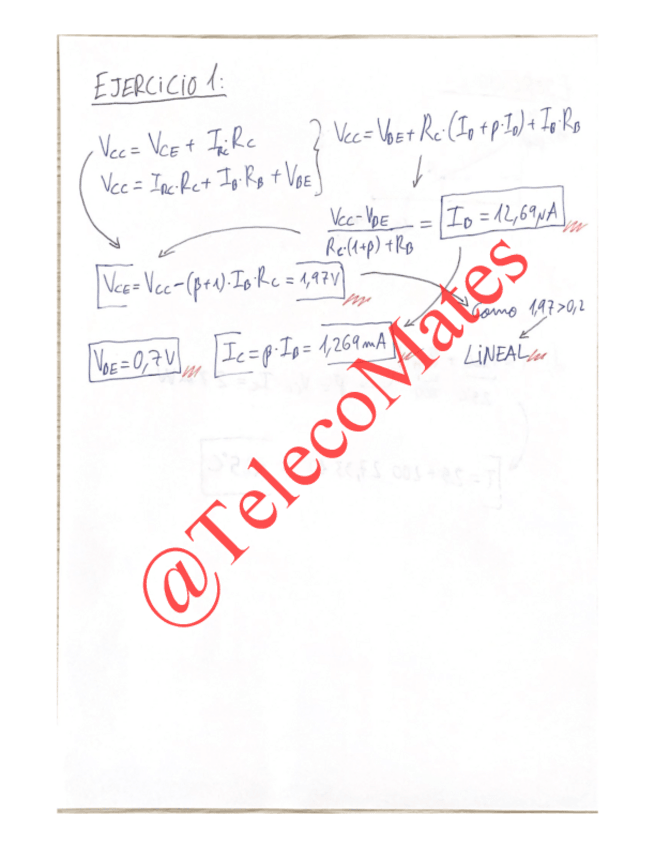 EJERCICIO 1:
Vcc = VCE + IRC·RC
Vcc = IRC·RC + IB·RB + VBE
Vcc = VBE + RC·(IB + β·IB) + IB·RB
Vcc - VBE / RC·(1+β) + RB = IB = 12,69μA
VCE = Vcc - (β+1)·IB·RC = 1,97V
Como 1,97>0,2
LINEAL
VBE = 0,7V
IC = β·IB = 1,269mA
@TelecoMates